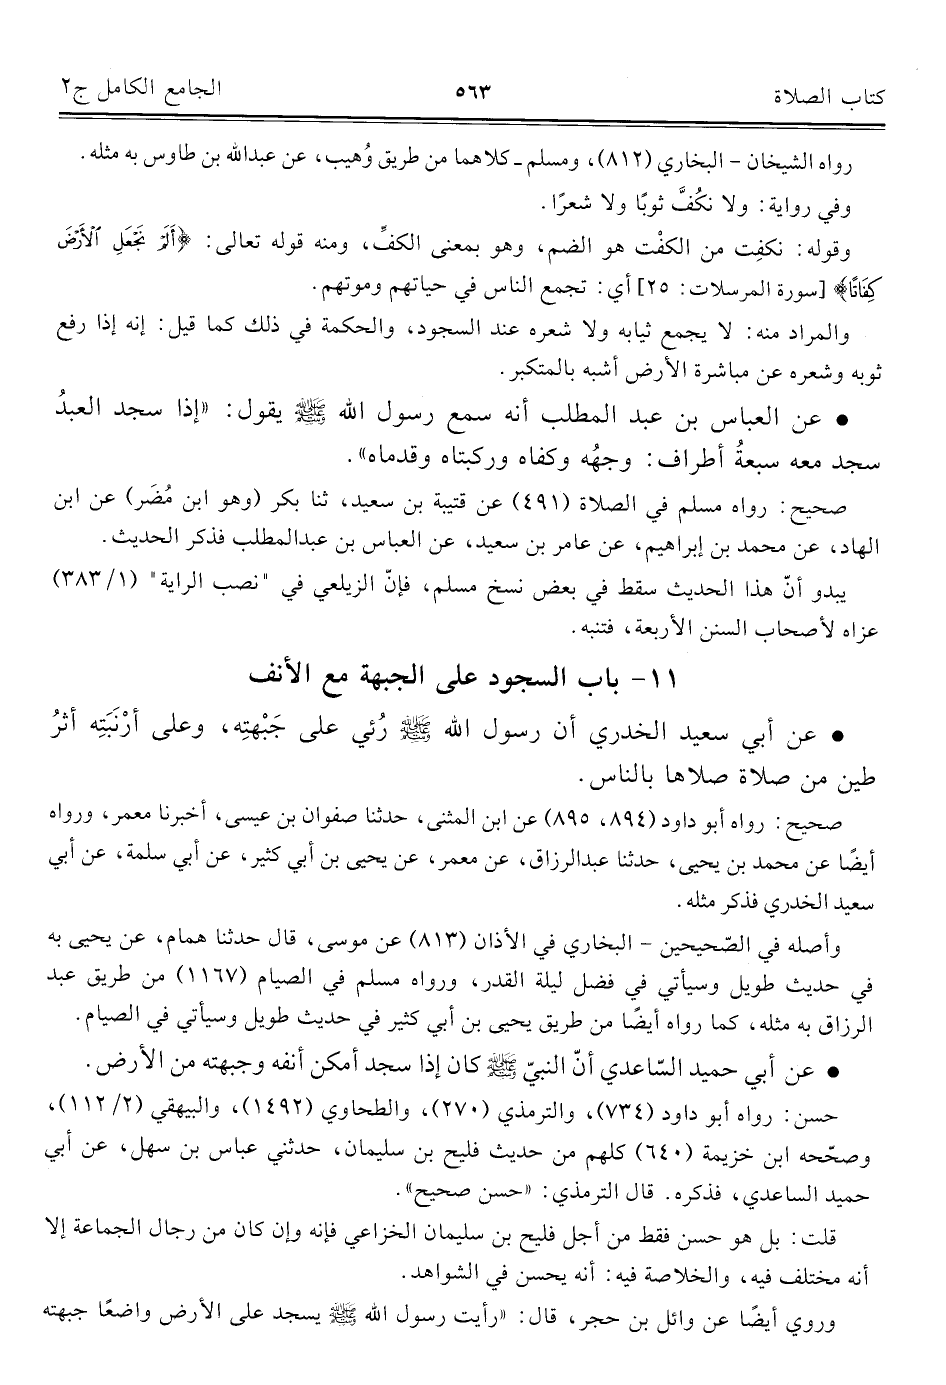 كتاب الصلاة ٥٦٣ الجامع الكامل ج٢
رواه الشيخان - البخاري (٨١٢)، ومسلم - كلاهما من طريق وُهيب، عن عبدالله بن طاوس به مثله.
وفي رواية: ولا نكُفَّ ثوبًا ولا شعرًا.
وقوله: نكفِت من الكفْت هو الضم، وهو بمعنى الكفِّ، ومنه قوله تعالى: ﴿أَلَمْ نَجْعَلِ ٱلْأَرْضَ
كِفَاتًا﴾ [سورة المرسلات: ٢٥] أي: تجمع الناس في حياتهم وموتهم.
والمراد منه: لا يجمع ثيابه ولا شعره عند السجود، والحكمة في ذلك كما قيل: إنه إذا رفع
ثوبه وشعره عن مباشرة الأرض أشبه بالمتكبر.
• عن العباس بن عبد المطلب أنه سمع رسول الله ﷺ يقول: «إذا سجد العبدُ
سجد معه سبعةُ أطراف: وجهُه وكفاه وركبتاه وقدماه».
صحيح: رواه مسلم في الصلاة (٤٩١) عن قتيبة بن سعيد، ثنا بكر (وهو ابن مُضَر) عن ابن
الهاد، عن محمد بن إبراهيم، عن عامر بن سعيد، عن العباس بن عبدالمطلب فذكر الحديث.
يبدو أنّ هذا الحديث سقط في بعض نسخ مسلم، فإنّ الزيلعي في "نصب الراية" (١/ ٣٨٣)
عزاه لأصحاب السنن الأربعة، فتنبه.
١١- باب السجود على الجبهة مع الأنف
• عن أبي سعيد الخدري أن رسول الله ﷺ رُئي على جَبْهتِه، وعلى أرْنَبَتِه أثرُ
طين من صلاة صلاها بالناس.
صحيح: رواه أبو داود (٨٩٤، ٨٩٥) عن ابن المثنى، حدثنا صفوان بن عيسى، أخبرنا معمر، ورواه
أيضًا عن محمد بن يحيى، حدثنا عبدالرزاق، عن معمر، عن يحيى بن أبي كثير، عن أبي سلمة، عن أبي
سعيد الخدري فذكر مثله.
وأصله في الصّحيحين - البخاري في الأذان (٨١٣) عن موسى، قال حدثنا همام، عن يحيى به
في حديث طويل وسيأتي في فضل ليلة القدر، ورواه مسلم في الصيام (١١٦٧) من طريق عبد
الرزاق به مثله، كما رواه أيضًا من طريق يحيى بن أبي كثير في حديث طويل وسيأتي في الصيام.
• عن أبي حميد السّاعدي أنّ النبيّ ﷺ كان إذا سجد أمكن أنفه وجبهته من الأرض.
حسن: رواه أبو داود (٧٣٤)، والترمذي (٢٧٠)، والطحاوي (١٤٩٢)، والبيهقي (٢/ ١١٢)،
وصحّحه ابن خزيمة (٦٤٠) كلهم من حديث فليح بن سليمان، حدثني عباس بن سهل، عن أبي
حميد الساعدي، فذكره. قال الترمذي: «حسن صحيح».
قلت: بل هو حسن فقط من أجل فليح بن سليمان الخزاعي فإنه وإن كان من رجال الجماعة إلا
أنه مختلف فيه، والخلاصة فيه: أنه يحسن في الشواهد.
وروي أيضًا عن وائل بن حجر، قال: «رأيت رسول الله ﷺ يسجد على الأرض واضعًا جبهته